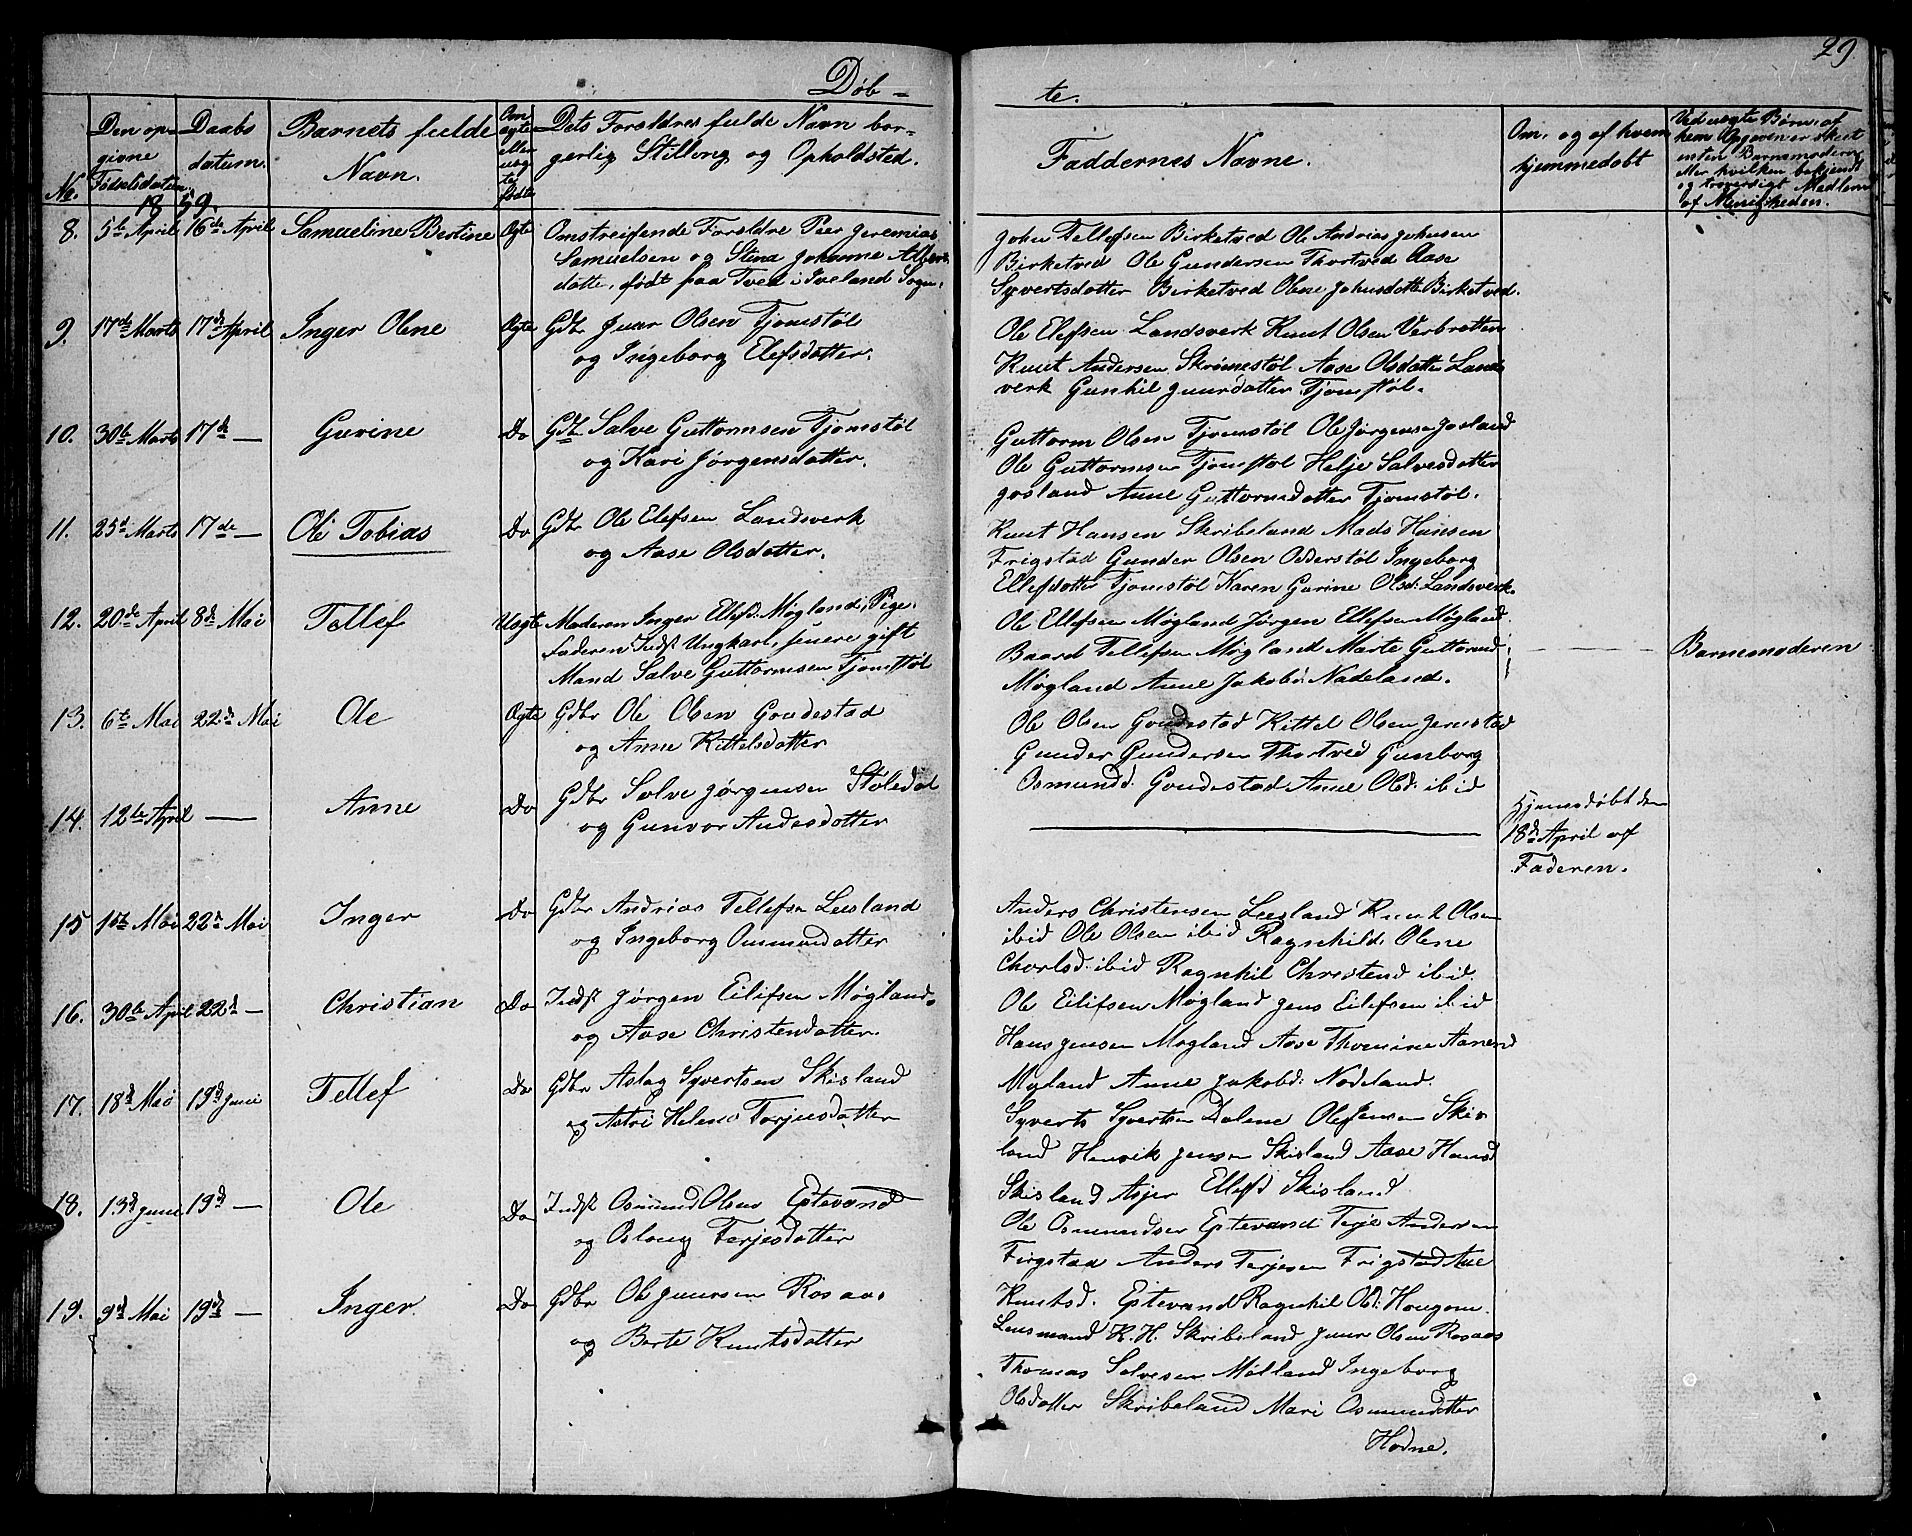 29.
Døb-
te.
No.
Den op-
givne
Fødselsdatum.
Daabs
datum.
Barnets fulde
Navn.
Om
ægte
eller
uæg
te
fødte
Dets Forældres fulde Navn bor-
gerlig Stilling og Opholdsted.
Faddernes Navne.
Om, og af hvem
hjemmedøbt
Ved uægte Børn: af
hvem Opgiven er skeet
enten Barnemoderen
eller hvilken bekjendt
og troværdigt Medlem
af Menigheden.
1859.
8. 5te April 16de April Samueline Bertine Ægte Omstreifende Forældre Peer Jeremias
Samuelsen og Stina Johanne Albert
datte, født paa Tved i Iveland Sogn.
John Tellefsen Birketved Ole Andrias Johnsen
Birketved Ole Gundersen Thortved Aase
Syvertsdatter Birketved Olene Johnsdatte Birketved.
9. 17de Marts 17de April Inger Olene Ægte Gdbr Juar Olsen Tjomstøl
og Ingeborg Elefsdatter.
Ole Elefsen Landsverk Knut Olsen Verbratten
Knut Andersen Skrømestøl Aase Olsdatter Lands
verk Gunhil Juursdatter Tjomstøl.
10. 30te Marts 17de — Gurine Do Gdbr Salve Guttormsen Tjomstøl
og Kari Jørgensdatter.
Guttorm Olsen Tjomstøl Ole Jørgensen Josland
Ole Guttormsen Tjomstøl Helje Salvesdatter
Josland Anne Guttormsdatter Tjomstøl.
11. 25d Marts 17de — Ole Tobias Do Gdbr Ole Elefsen Landsverk
og Aase Olsdatter.
Knut Hansen Skribeland Mads Hansen
Frigstad Gunder Olsen Odderstøl Ingeborg
Ellefdatter Tjomstøl Karen Gurine Olsd: Landsverk.
12. 20de April 8de Mai Tellef Uægte Moderen Inger Ellefsd. Møgland, Pige,
Faderen Indst Ungkarl, senere gift
Mand Salve Guttormsen Tjomstøl
Ole Ellefsen Møgland Jørgen Ellefsen Møgland
Baard Tellefsen Møgland Marte Guttormsd
Møgland Anne Jakobd: Nadeland.
Barnemoderen
13. 6te Mai 22d Mai Ole Ægte Gdbr Ole Olsen Goudestad
og Anne Kittelsdatter
Ole Olsen Goudestad Kittel Olsen Jerestad
Gunder Gundersen Thortved Gunborg
Osmundd. Goudestad Anne Olsd. ibid
14. 12te April — Anne Do Gdbr Salve Jørgensen Støledal
og Gunvor Andersdatter
Hjemmedøbt den
18d April af
Faderen.
15 1ste Mai 22d Mai Inger Do Gdbr Andrias Tellefsen Leesland
og Ingeborg Ommundatter
Anders Christensen Leesland Knut Olsen
ibid Ole Olsen ibid Ragnehild Olene
Charlsd. ibid Ragnhil Christend ibid.
16. 30te April 22d — Christian Do Indst Jørgen Eilifsen Møgland.
og Aase Christensdatter.
Ole Eilifsen Møgland Jens Eilefsen ibid
Hans Jensen Møgland Aase Thomine Aanend
Møgland Anne Jakobd: Nødeland.
17. 18d Mai 19d Juni Tellef Do Gdbr Aslag Syvertsen Skisland
og Astri Helene Terjusdatter
Syverts Syvertsen Dalene Ole Jensen Skis
land Henrik Jensen Skisland Aase Hansd
Skisland Asjer Ellefsd Skisland
18. 13d Juni 19d — Ole Do Indst Osmund Olsen Eptevand
og Oslaug Terjesdatter
Ole Osmundsen Eptevand Terje Andersen
Firgstad Anders Terjesen Frigstad Ane
Knutsd. Eptevand Ragnhil Old: Hougom.
19. 9d Mai 19d — Inger. Do Gdbr Ole Juursen Rosaas
og Berte Knutsdatter
Lensmand K. H. Skribeland Juur Olsen Rosaas
Thomas Salvesen Mølland Ingeborg
Olsdatter Skribeland Mari Osmundatter
Hodne.